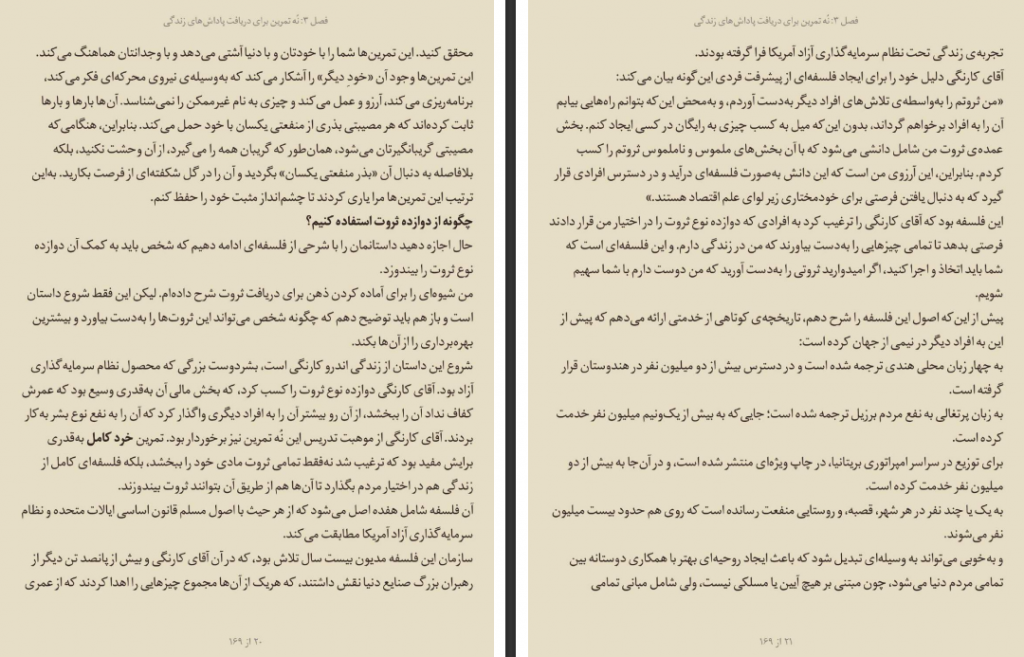 فصل ۳: نُه تمرین برای دریافت پاداش‌های زندگی
محقق کنید. این تمرین‌ها شما را با خودتان و با دنیا آشتی می‌دهد و با وجدانتان هماهنگ می‌کند.
این تمرین‌ها وجود آن «خودِ دیگر» را آشکار می‌کند که به‌وسیله‌ی نیروی محرکه‌ای فکر می‌کند،
برنامه‌ریزی می‌کند، آرزو و عمل می‌کند و چیزی به نام غیرممکن را نمی‌شناسد. آن‌ها بارها و بارها
ثابت کرده‌اند که هر مصیبتی بذری از منفعتی یکسان با خود حمل می‌کند. بنابراین، هنگامی‌که
مصیبتی گریبانگیرتان می‌شود، همان‌طور که گریبان همه را می‌گیرد، از آن وحشت نکنید، بلکه
بلافاصله به دنبال آن «بذر منفعتی یکسان» بگردید و آن را در گل شکفته‌ای از فرصت بکارید. به‌این
ترتیب این تمرین‌ها مرا یاری کردند تا چشم‌انداز مثبت خود را حفظ کنم.
چگونه از دوازده ثروت استفاده کنیم؟
حال اجازه دهید داستانمان را با شرحی از فلسفه‌ای ادامه دهیم که شخص باید به کمک آن دوازده
نوع ثروت را بیندوزد.
من شیوه‌ای را برای آماده کردن ذهن برای دریافت ثروت شرح داده‌ام. لیکن این فقط شروع داستان
است و باز هم باید توضیح دهم که چگونه شخص می‌تواند این ثروت‌ها را به‌دست بیاورد و بیشترین
بهره‌برداری را از آن‌ها بکند.
شروع این داستان از زندگی اندرو کارنگی است، بشردوست بزرگی که محصول نظام سرمایه‌گذاری
آزاد بود. آقای کارنگی دوازده نوع ثروت را کسب کرد، که بخش مالی آن به‌قدری وسیع بود که عمرش
کفاف نداد آن را ببخشد، از آن رو بیشتر آن را به افراد دیگری واگذار کرد که آن را به نفع نوع بشر به‌کار
بردند. آقای کارنگی از موهبت تدریس این نُه تمرین نیز برخوردار بود. تمرین خرد کامل به‌قدری
برایش مفید بود که ترغیب شد نه‌فقط تمامی ثروت مادی خود را ببخشد، بلکه فلسفه‌ای کامل از
زندگی هم در اختیار مردم بگذارد تا آن‌ها هم از طریق آن بتوانند ثروت بیندوزند.
آن فلسفه شامل هفده اصل می‌شود که از هر حیث با اصول مسلم قانون اساسی ایالات متحده و نظام
سرمایه‌گذاری آزاد آمریکا مطابقت می‌کند.
سازمان این فلسفه مدیون بیست سال تلاش بود، که در آن آقای کارنگی و بیش از پانصد تن دیگر از
رهبران بزرگ صنایع دنیا نقش داشتند، که هریک از آن‌ها مجموع چیزهایی را اهدا کردند که از عمری
۲۰ از ۱۶۹
فصل ۳: نُه تمرین برای دریافت پاداش‌های زندگی
تجربه‌ی زندگی تحت نظام سرمایه‌گذاری آزاد آمریکا فرا گرفته بودند.
آقای کارنگی دلیل خود را برای ایجاد فلسفه‌ای از پیشرفت فردی این‌گونه بیان می‌کند:
«من ثروتم را به‌واسطه‌ی تلاش‌های افراد دیگر به‌دست آوردم، و به‌محض این‌که بتوانم راه‌هایی بیابم
آن را به افراد برخواهم گرداند، بدون این‌که میل به کسب چیزی به رایگان در کسی ایجاد کنم. بخش
عمده‌ی ثروت من شامل دانشی می‌شود که با آن بخش‌های ملموس و ناملموس ثروتم را کسب
کردم. بنابراین، این آرزوی من است که این دانش به‌صورت فلسفه‌ای درآید و در دسترس افرادی قرار
گیرد که به دنبال یافتن فرصتی برای خودمختاری زیر لوای علم اقتصاد هستند.»
این فلسفه بود که آقای کارنگی را ترغیب کرد به افرادی که دوازده نوع ثروت را در اختیار من قرار دادند
فرصتی بدهد تا تمامی چیزهایی را به‌دست بیاورند که من در زندگی دارم. و این فلسفه‌ای است که
شما باید اتخاذ و اجرا کنید، اگر امیدوارید ثروتی را به‌دست آورید که من دوست دارم با شما سهیم
شویم.
پیش از این‌که اصول این فلسفه را شرح دهم، تاریخچه‌ی کوتاهی از خدمتی ارائه می‌دهم که پیش از
این به افراد دیگر در نیمی از جهان کرده است:
به چهار زبان محلی هندی ترجمه شده است و در دسترس بیش از دو میلیون نفر در هندوستان قرار
گرفته است.
به زبان پرتغالی به نفع مردم برزیل ترجمه شده است؛ جایی‌که به بیش از یک‌ونیم میلیون نفر خدمت
کرده است.
برای توزیع در سراسر امپراتوری بریتانیا، در چاپ ویژه‌ای منتشر شده است، و در آن‌جا به بیش از دو
میلیون نفر خدمت کرده است.
به یک یا چند نفر در هر شهر، قصبه، و روستایی منفعت رسانده است که روی هم حدود بیست میلیون
نفر می‌شوند.
و به‌خوبی می‌تواند به وسیله‌ای تبدیل شود که باعث ایجاد روحیه‌ای بهتر با همکاری دوستانه بین
تمامی مردم دنیا می‌شود، چون مبتنی بر هیچ آیین یا مسلکی نیست، ولی شامل مبانی تمامی
۲۱ از ۱۶۹